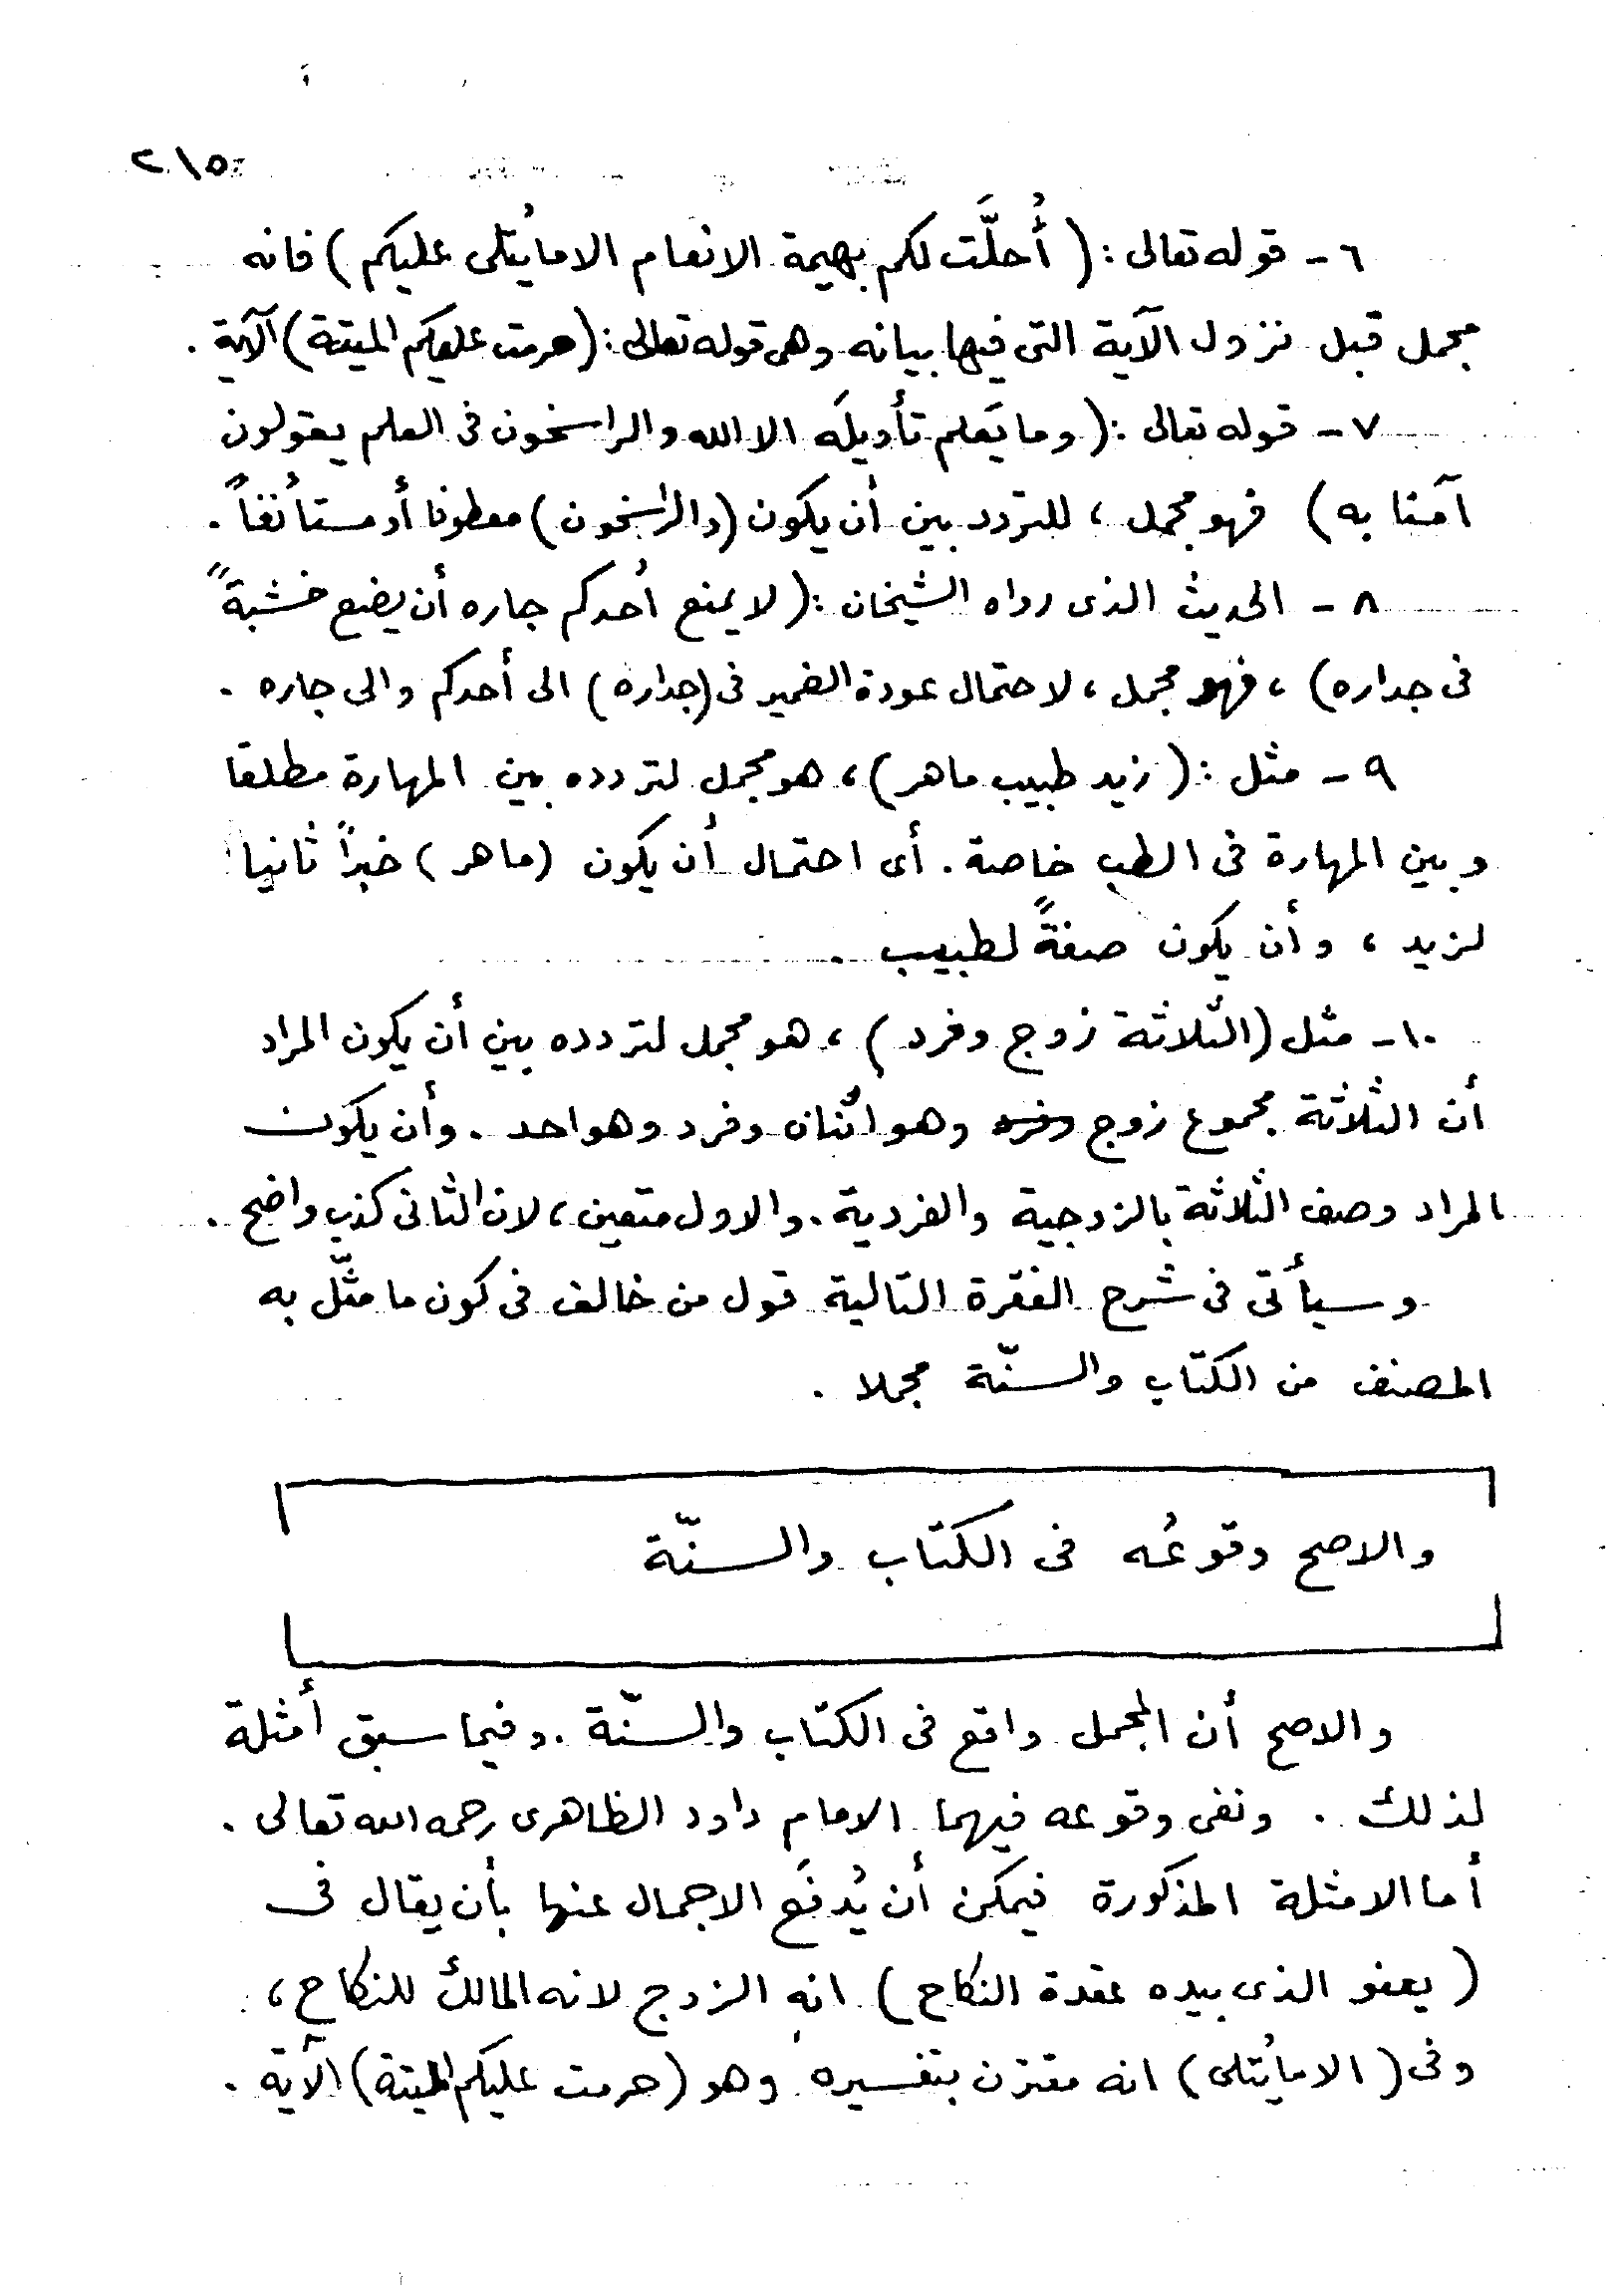 ٢١٥
٦ - قوله تعالى : ( أُحلَّت لكم بهيمة الانعام الا مايُتلى عليكم ) فانه
مجمل قبل نزول الآية التى فيها بيانه وهى قوله تعالى : ( حرمت عليكم الميتة ) الآية .
٧ - قوله تعالى : ( وما يَعلم تأويلَه الا الله والراسخون فى العلم يقولون
آمنا به ) فهو مجمل ، للتردد بين أن يكون ( والراسخون ) معطوفا أو مستأنفاً .
٨ - الحديث الذى رواه الشيخان : ( لا يمنع أحدكم جاره أن يضع خشبةً
فى جداره ) ، فهو مجمل ، لاحتمال عودة الضمير فى ( جداره ) الى أحدكم والى جاره .
٩ - مثل : ( زيد طبيب ماهر ) ، هو مجمل لتردده بين المهارة مطلقا
وبين المهارة فى الطب خاصة . أى احتمال أن يكون ( ماهر ) خبراً ثانيا
لزيد ، وأن يكون صفةً لطبيب .
١٠ - مثل ( الثلاثة زوج وفرد ) ، هو مجمل لتردده بين أن يكون المراد
أن الثلاثة مجموع زوج وهو اثنان وفرد وهو واحد . وأن يكون
المراد وصف الثلاثة بالزوجية والفردية . والاول متعين ، لان الثانى كذب واضح .
وسيأتى فى شرح الفقرة التالية قول من خالف فى كون ما مثّل به
المصنف من الكتاب والسنّة مجملا .
والاصح وقوعُه فى الكتاب والسنّة
والاصح أن المجمل واقع فى الكتاب والسنّة . وفيما سبق أمثلة
لذلك . ونفى وقوعه فيهما الامام داود الظاهرى رحمه الله تعالى .
أما الامثلة المذكورة فيمكن أن يُدفَع الاجمال عنها بأن يقال فى
( يعفو الذى بيده عقدة النكاح ) انه الزوج لانه المالك للنكاح ،
وفى ( الا مايُتلى ) انه مقترن بتفسيره وهو ( حرمت عليكم الميتة ) الآية .